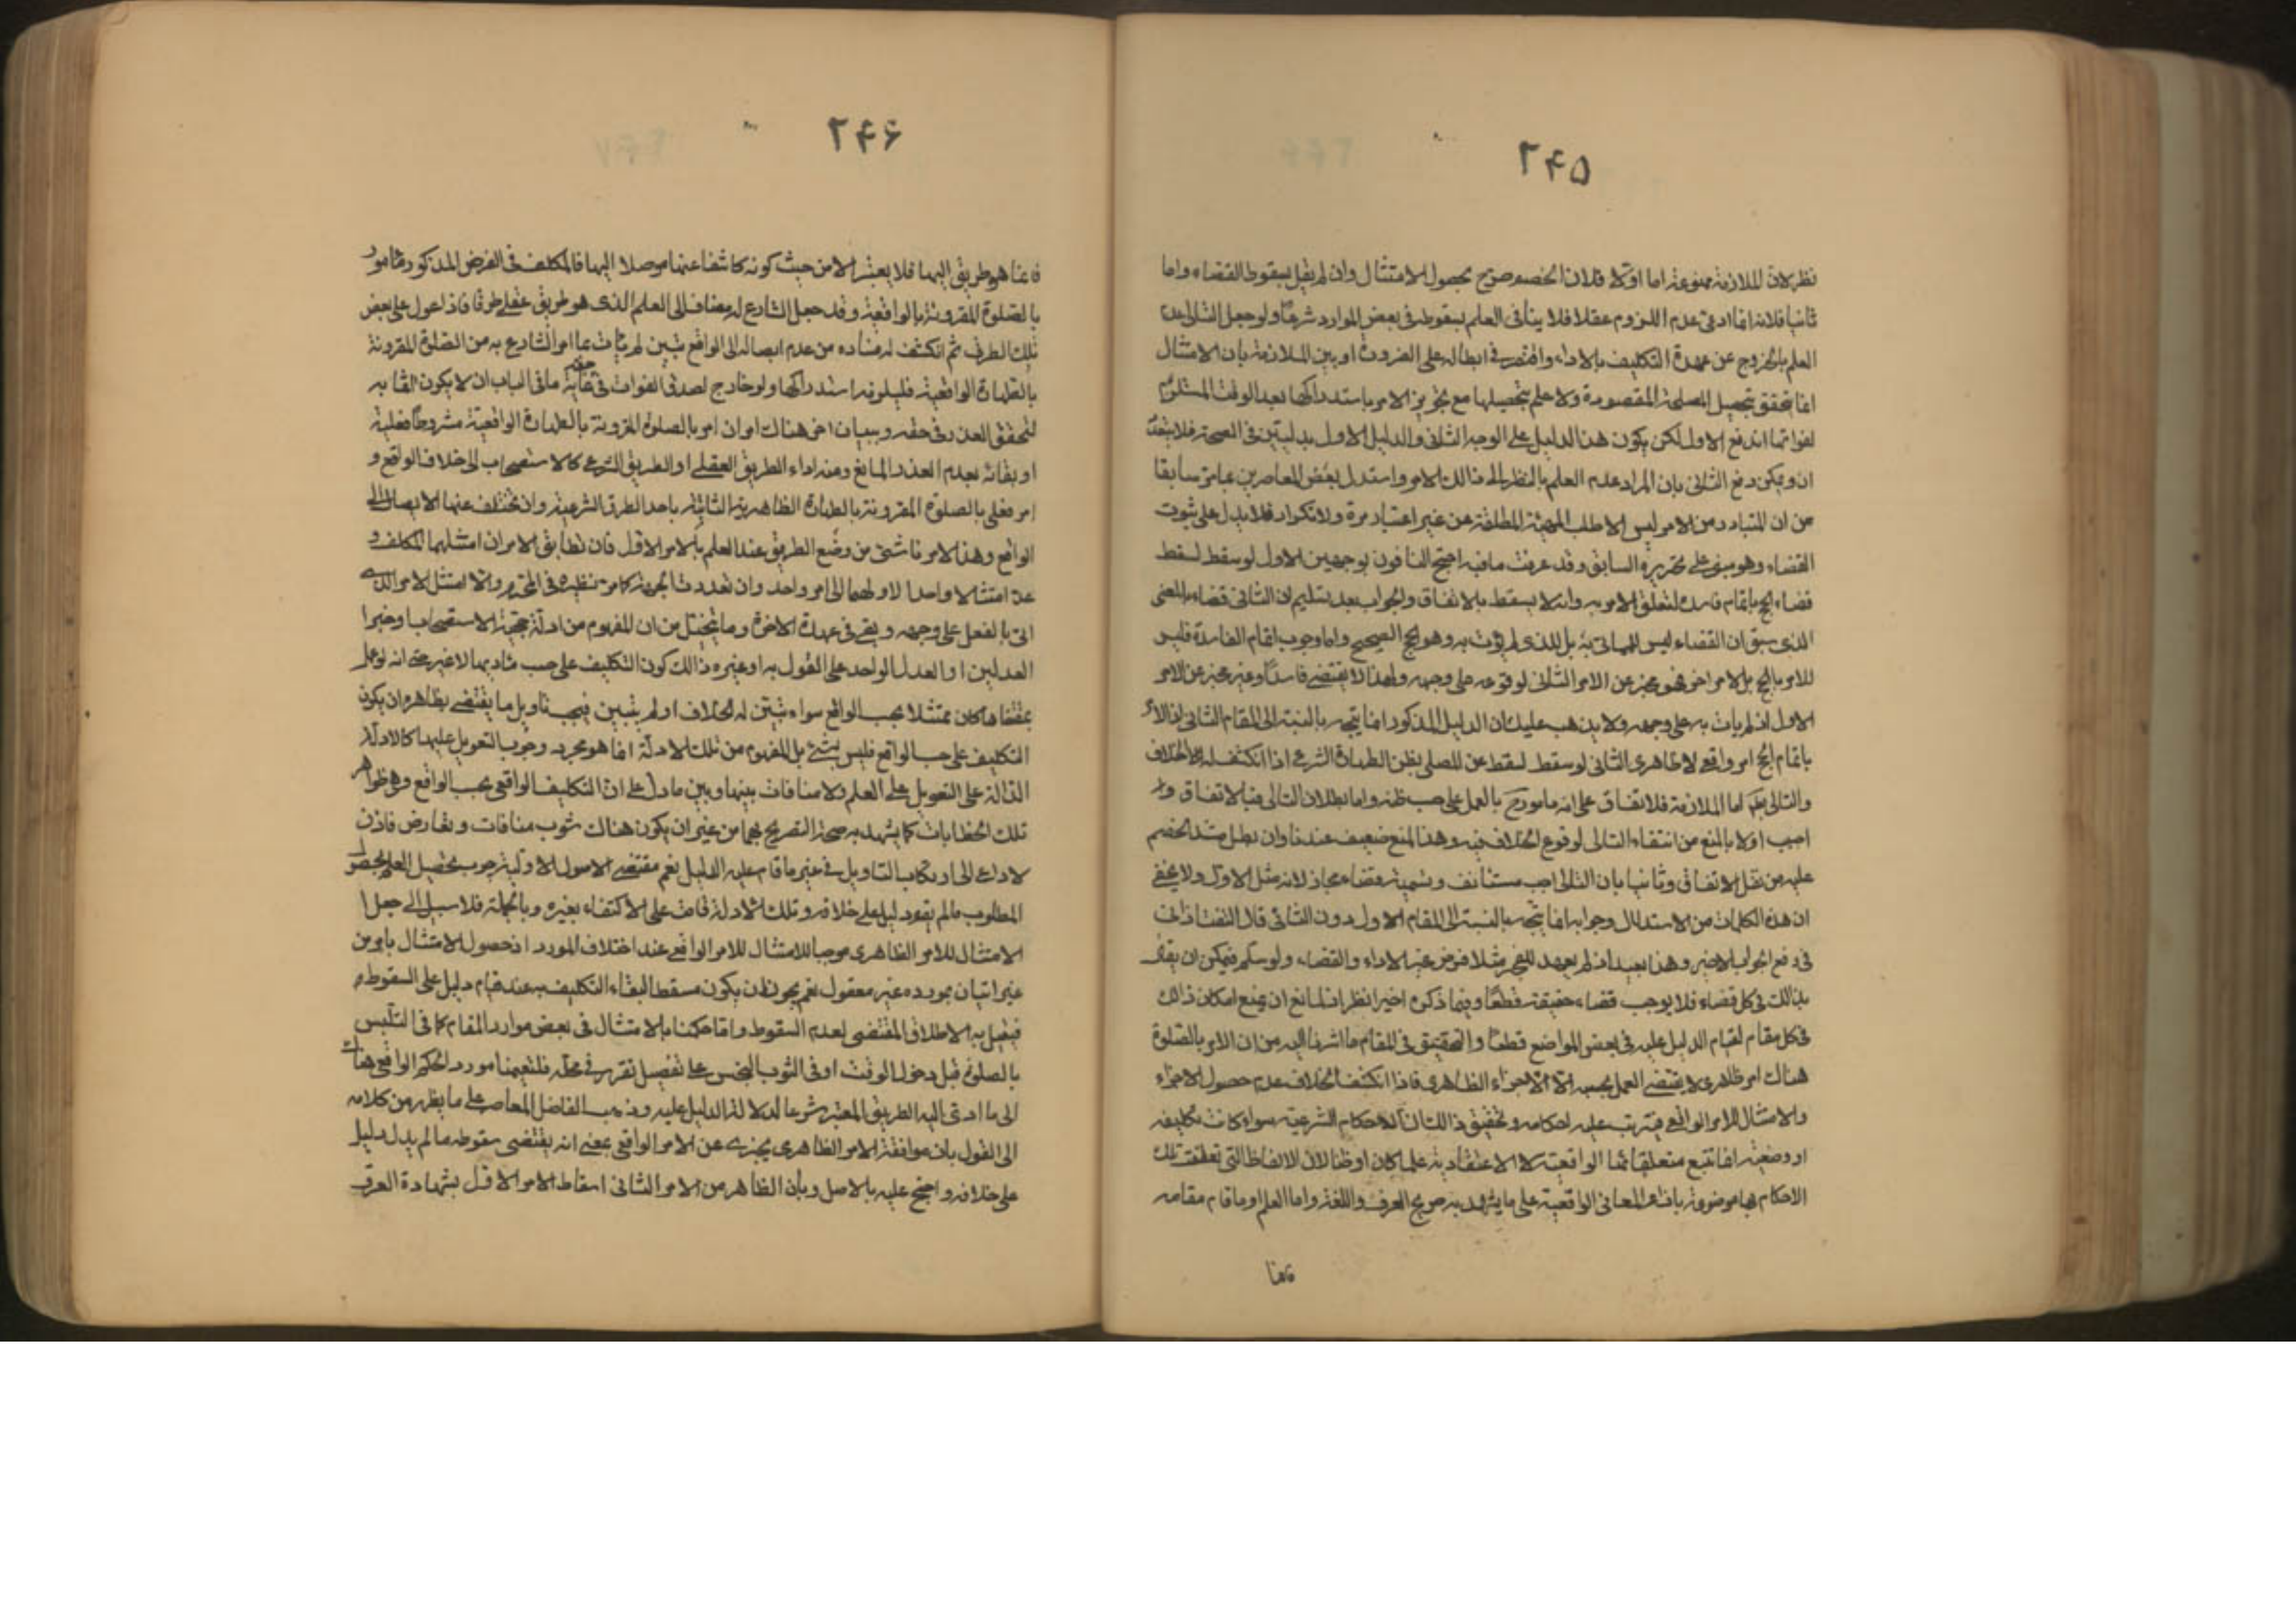 ۲۴۵
نظر لان الملازمة ممنوعة اما اولا فلان الخصم صرح بحصول الامتثال وان لم يقل بسقوط القضاء واما
ثانيا فلانه انما ادعى عدم اللزوم عقلا فلا ينافى العلم بسقوطه فى بعض الموارد شرعا ولو جعل التالى عدم
العلم بالخروج عن عهدة التكليف بالاداء واقتصر فى ابطاله على الضرورة او بين الملازمة بان الامتثال
انما يتحقق بتحصيل المصلحة المقصودة ولا علم بتحصيلها مع تجويز الامر باستدراكها بعد الوقت المستلزم
لفواتها اندفع الاول لكن يكون هذا الدليل على الوجه الثانى والدليل الاول بدليتين فى الصحة فلا يتعدد
ان ويمكن دفع الثانى بان المراد عدم العلم بالنظر الى ذالك الامر واستدل بعض المعاصرين بما مر سابقا
من ان المتبادر من الامر ليس الا طلب المهية المطلقة من غير اعتبار مرة ولا تكرار فلا يدل على ثبوت
القضاء وهو مبنى على تحريره السابق وقد عرفت ما فيه احتج النافون بوجهين الاول لو سقط لسقط
قضاء الحج باتمام فاسده لتعلق الامر به وانه لا يسقط بالاتفاق والجواب بعد تسليم ان الثانى قضاء بالمعنى
الذى سبق ان القضاء ليس للماتى به بل للذى لم يؤت به وهو الحج الصحيح واما وجوب اتمام الفاسدة فليس
للامر بالحج بل لامر اخر فهو مجز عن الامر الثانى لوقوعه على وجهه ولهذا لا يقتضى فاسدا وغير مجز عن الامر
الاول اذ لم يات به على وجهه ولا يذهب عليك ان الدليل المذكور انما يتجه بالنسبة الى المقام الثانى اذ الامر
باتمام الحج امر واقعى لا ظاهرى الثانى لو سقط لسقط عن المصلى بظن الطهارة الشرعى اذا انكشف له الخلاف
والتالى بط اما الملازمة فللاتفاق على انه مامور ح بالعمل على حسب ظنه واما بطلان التالى فبالاتفاق و
اجيب اولا بالمنع من انتفاء التالى لوقوع الخلاف فيه وهذا المنع ضعيف عندنا وان بطل مستند الخصم
عليه من نقل الاتفاق وثانيا بان التالى واجب مستانف وتسميته قضاء مجاز لانه مثل الاول ولا يخفى
ان هذه الكلمات من الاستدلال وجوابه انما يتجه بالنسبة الى المقام الاول دون الثانى قال التفتازانى
فى دفع الجواب الاخير وهذا بعيد اذ لم يعهد للفجر مثلا فرض غير الاداء والقضاء ولو سلم فيمكن ان يقال
بذالك فى كل قضاء فلا يوجب قضاء حقيقة قطعا وفيما ذكره اخيرا نظر اذ للمانع ان يمنع امكان ذالك
فى كل مقام لقيام الدليل عليه فى بعض المواضع قطعا والتحقيق فى المقام ما اشرنا اليه من ان الامر بالصلوة
هناك امر ظاهرى لا يقتضى العمل بحسبه الا الاجزاء الظاهرى فاذا انكشف الخلاف عدم حصول الاجزاء
والامتثال للامر الواقعى فيترتب عليه احكامه وتحقيق ذالك ان الاحكام الشرعية سواء كانت تكليفية
او وضعية انما تتبع متعلقاتها الواقعية لا الاعتقادية علما كان او ظنا لان الالفاظ التى تعلقت تلك
الاحكام بها موضوعة بازاء المعانى الواقعية على ما يشهد به صريح العرف واللغة واما العلم او ما قام مقامه
فانما
۲۴۶
فانما هو طريق اليها فلا يعتبر الا من حيث كونه كاشفا عنها موصلا اليها فالمكلف فى الفرض المذكور مامور
بالصلوة المقرونة بالواقعية وقد جعل الشارع له مضافا الى العلم الذى هو طريق عقلى طرقا فاذا عول على بعض
تلك الطرق ثم انكشف له فساده من عدم ايصاله الى الواقع تبين لم يات بما امر الشارع به من الصلوة المقرونة
بالطهارة الواقعية فيلزمه استدراكها ولو خارج لصدق الفوات فى حقه غاية ما فى الباب ان لا يكون اثما به
لتحقق العذر فى حقه وببيان اخر هناك امران امر بالصلوة المقرونة بالطهارة الواقعية مشروطا فعلية
او بقائه بعدم العذر المانع ومنه اداء الطريق العقلى او الطريق الشرعى كالاستصحاب الى خلاف الواقع و
امر فعلى بالصلوة المقرونة بالطهارة الظاهرية الثابتة باحد الطرق الشرعية وان تختلف عنها الايصال الى
الواقع وهذا الامر ناشئ من وضع الطريق عند العلم بالامر الاول فان تطابق الامران امتثلهما المكلف و
عد امتثالا واحدا لاولهما الى امر واحد وان تعددت الجهة كما مر نظيره فى التحرير والا امتثل الامر الذى
اتى بالفعل على وجهه وبقى فى عهدة الاخر وما يتخيل من ان المفهوم من ادلة حجية الاستصحاب او خبر
العدلين او العدل الواحد على القول به او غير ذالك كون التكليف على حسب مؤديها لا غير حتى انه لو عمل
بمقتضاها كان ممتثلا بحسب الواقع سواء تبين له الخلاف او لم يتبين فيجب تاويل ما يقتضى بظاهره ان يكون
التكليف على حسب الواقع فليس بشئ بل المفهوم من تلك الادلة انما هو مجرد وجوب التعويل عليها كالادلة
الدالة على التعويل على العلم ولا منافات بينها وبين ما دل على ان التكليف الواقعى بحسب الواقع وهى ظواهر
تلك الخطابات كما يشهد به صحة التصريح بهما من غير ان يكون هناك شوب منافات وتعارض فاذن
لا داعى الى ارتكاب التاويل فى غير ما قام عليه الدليل نعم مقتضى الاصول الاولية وجوب تحصيل العلم بحصول
المطلوب ما لم يقم دليل على خلافه وتلك الادلة قاضية على الاكتفاء بغيره وبالجملة فلا سبيل الى جعل
الامتثال للامر الظاهرى موجبا للامتثال للامر الواقعى عند اختلاف المورد اذ حصول الامتثال بامر من
غير اتيان بمورده غير معقول نعم يجوز ان يكون مسقطا لبقاء التكليف به عند قيام دليل على السقوط و
فيعمل به الاطلاق المقتضى لعدم السقوط واما حكمنا بالامتثال فى بعض موارد المقام كما فى التلبس
بالصلوة قبل دخول الوقت او فى الثوب النجس على تفصيل تقرر فى محله فلتعيمنا مورد الحكم الواقعى هناك
الى ما ادى اليه الطريق المعتبر شرعا لدلالة الدليل عليه وذهب الفاضل المعاصر على ما يظهر من كلامه
الى القول بان موافقة الامر الظاهرى يجزى عن الامر الواقعى بمعنى انه يقتضى سقوطه ما لم يدل دليل
على خلافه واحتج عليه بالاصل وبان الظاهر من الامر الثانى اسقاط الامر الاول بشهادة العرف